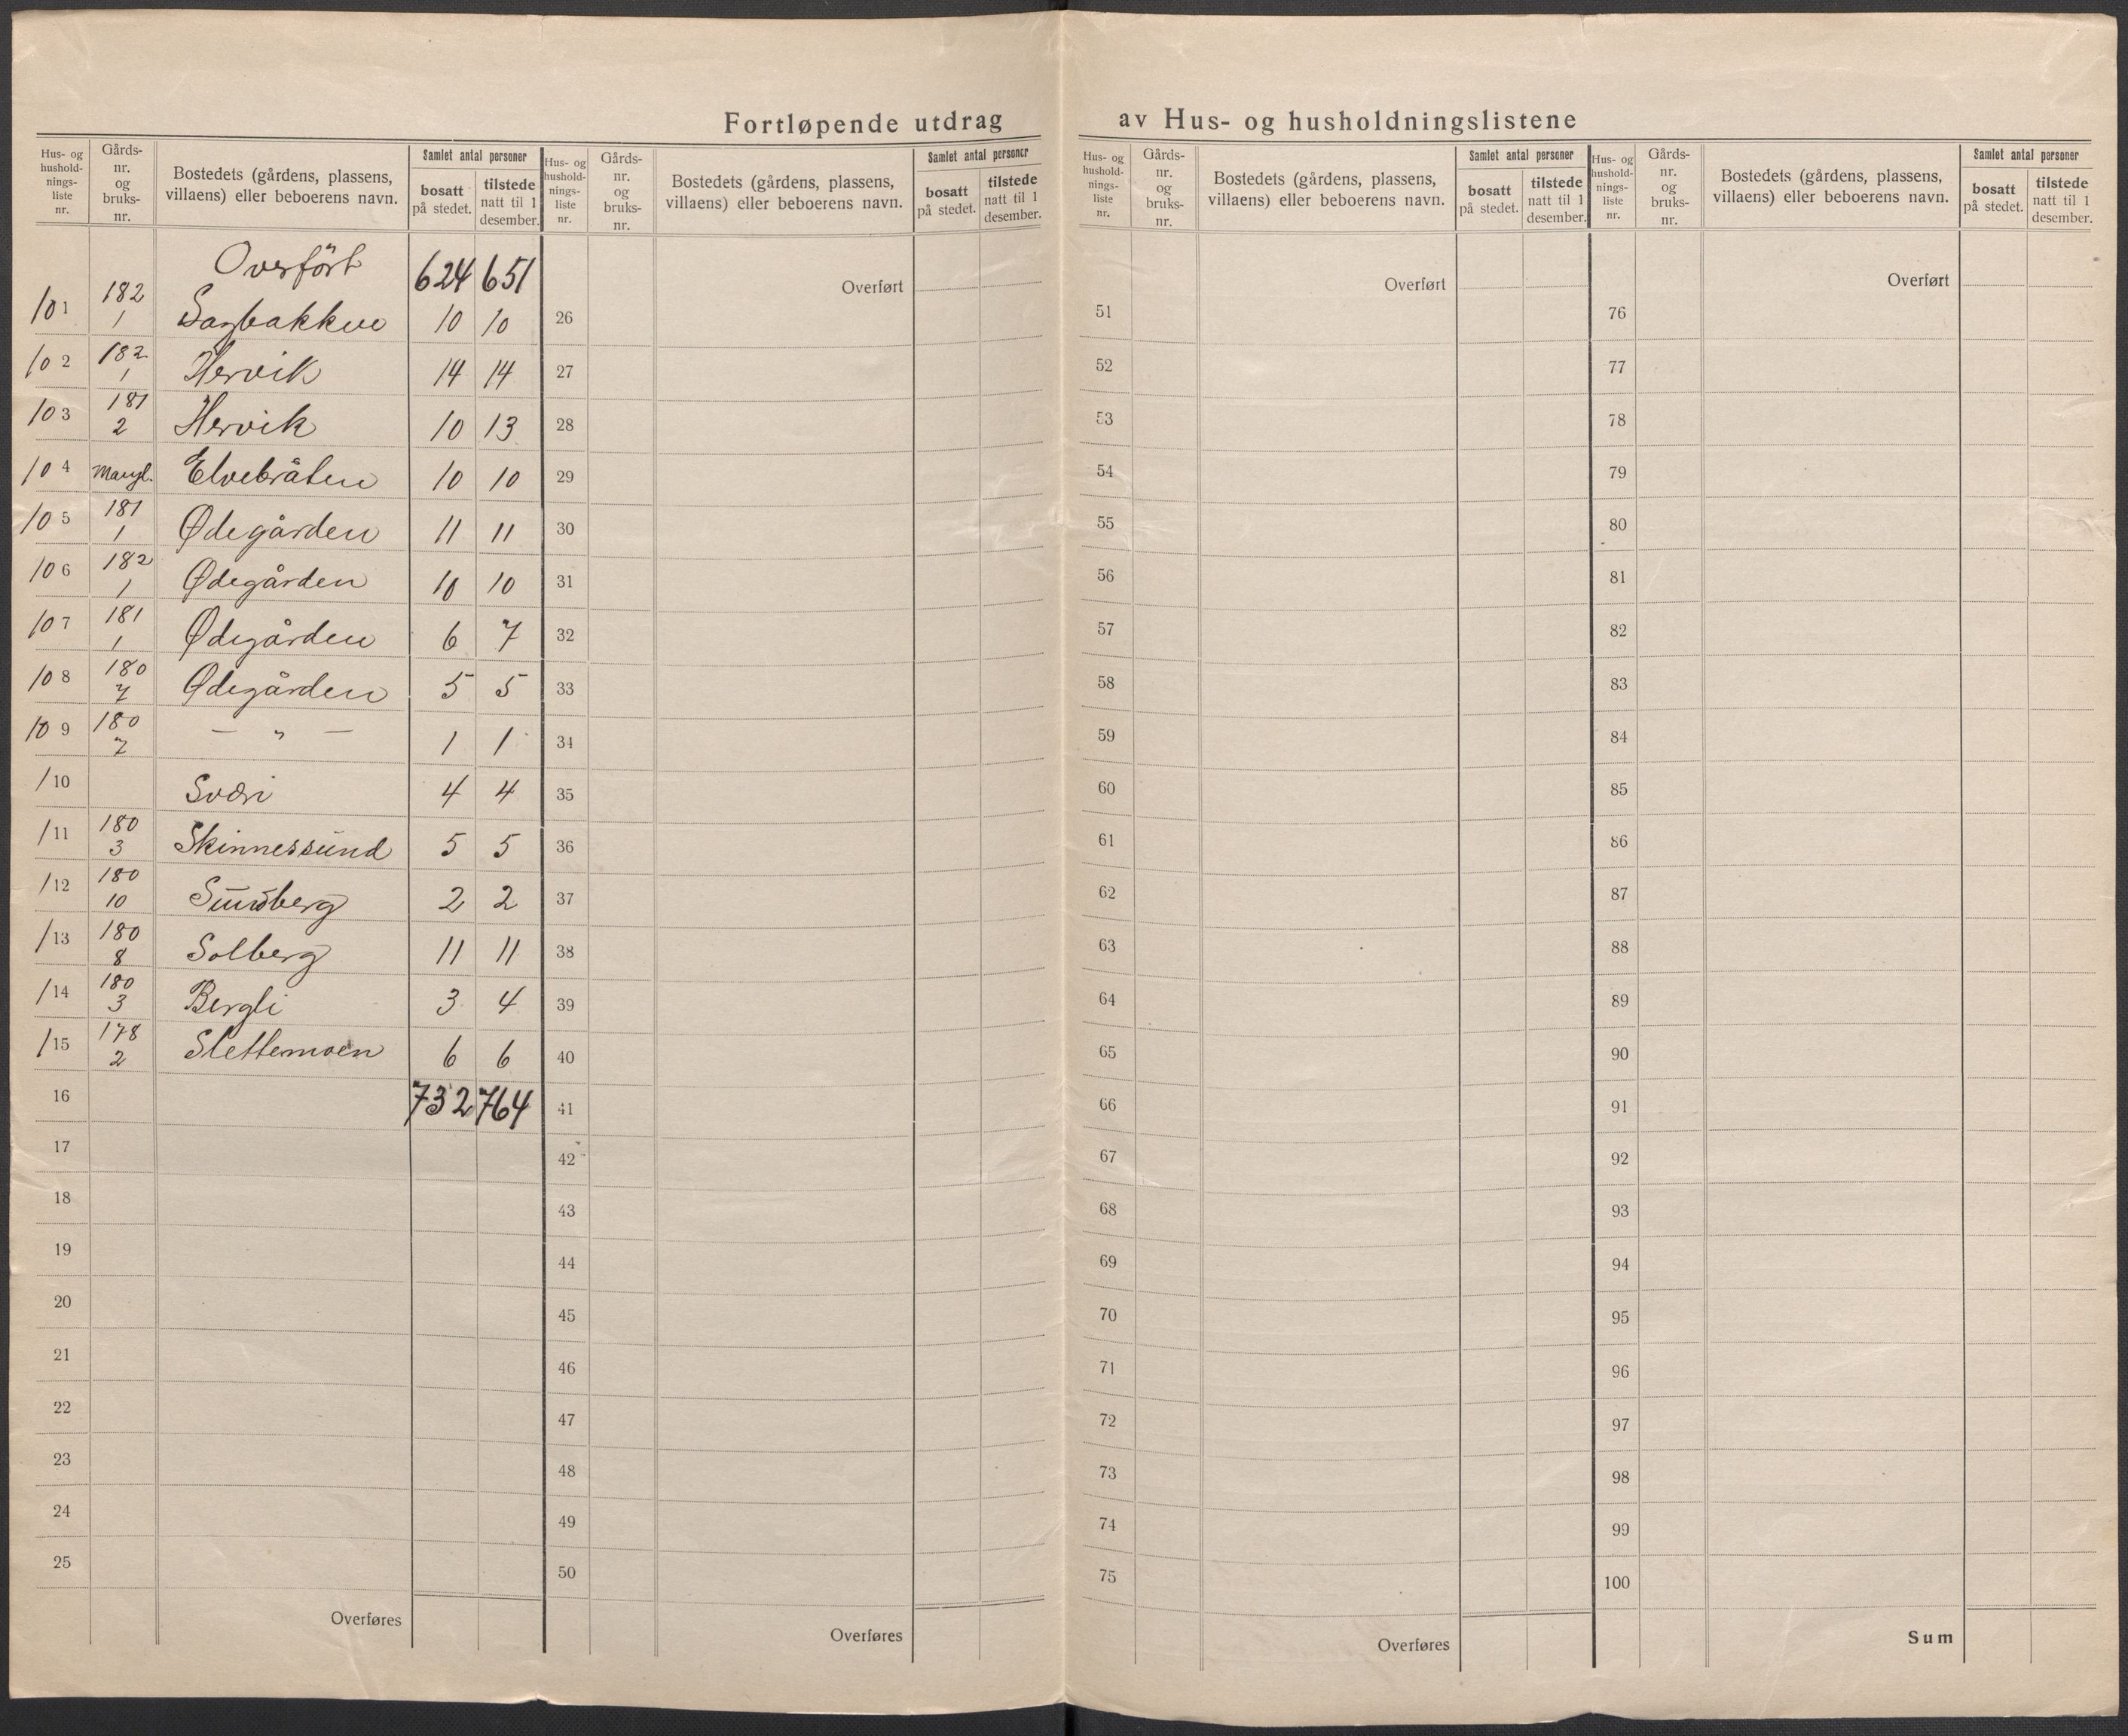 Fortløpende utdrag av Hus- og husholdningslistene
Hus- og hushold-nings-liste nr. | Gårds-nr. og bruks-nr. | Bostedets (gårdens, plassens, villaens) eller beboerens navn. | Samlet antal personer | bosatt på stedet. | tilstede natt til 1 desember.
Overført 624 651
101 182 1 Sagbakken 10 10
102 182 1 Hervik 14 14
103 181 2 Hervik 10 13
104 Mangl. Elvebråten 10 10
105 181 1 Ødegården 11 11
106 182 1 Ødegården 10 10
107 181 1 Ødegården 6 7
108 180 7 Ødegården 5 5
109 180 7 — " — 1 1
110 4 4
111 180 3 Skinnessund 5 5
112 180 10 Sundberg 2 2
113 180 8 Solberg 11 11
114 180 3 Bergli 3 4
115 178 2 Slettemoen 6 6
16 732 764
17
18
19
20
21
22
23
24
25
Overføres
Hus- og hushold-nings-liste nr. | Gårds-nr. og bruks-nr. | Bostedets (gårdens, plassens, villaens) eller beboerens navn. | Samlet antal personer | bosatt på stedet. | tilstede natt til 1 desember.
Overført
26
27
28
29
30
31
32
33
34
35
36
37
38
39
40
41
42
43
44
45
46
47
48
49
50
Overføres
Hus- og hushold-nings-liste nr. | Gårds-nr. og bruks-nr. | Bostedets (gårdens, plassens, villaens) eller beboerens navn. | Samlet antal personer | bosatt på stedet. | tilstede natt til 1 desember.
Overført
51
52
53
54
55
56
57
58
59
60
61
62
63
64
65
66
67
68
69
70
71
72
73
74
75
Overføres
Hus- og hushold-nings-liste nr. | Gårds-nr. og bruks-nr. | Bostedets (gårdens, plassens, villaens) eller beboerens navn. | Samlet antal personer | bosatt på stedet. | tilstede natt til 1 desember.
Overført
76
77
78
79
80
81
82
83
84
85
86
87
88
89
90
91
92
93
94
95
96
97
98
99
100
Sum